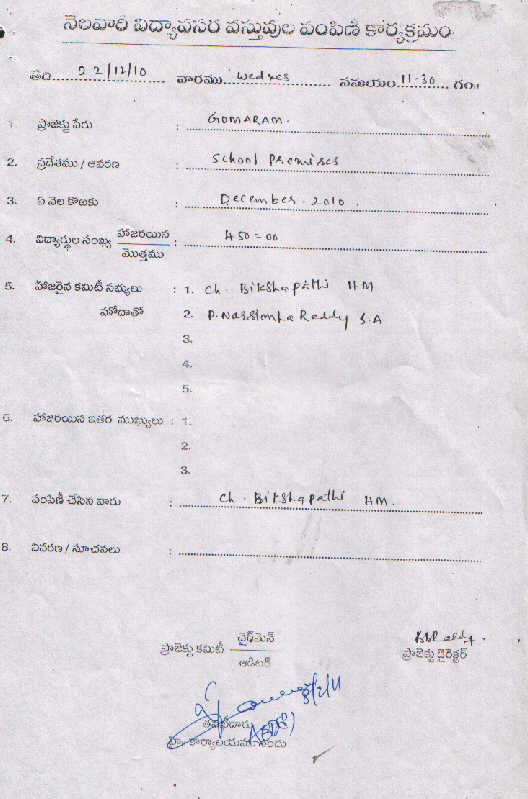 నెలవారి విద్యావసర వస్తువుల పంపిణి కార్యక్రమం
తేది 22/12/10 వారము Wednes సమయం 11-30 గం॥
1. ప్రాజెక్టు పేరు : GOMARAM.
2. ప్రదేశము / ఆవరణ : School Premises
3. ఏ నెల కొఱకు : December. 2010.
4. విద్యార్థుల సంఖ్య హాజరయిన / మొత్తము : 450=00
5. హాజరైన కమిటీ సభ్యులు : 1. Ch. Bikshapathi HM
హోదాతో 2. P. Narsimha Reddy S.A
3.
4.
5.
6. హాజరయిన ఇతర ముఖ్యులు : 1.
2.
3.
7. పంపిణీ చేసిన వారు : Ch. Bikshapathi HM.
8. వివరణ / సూచనలు :
ప్రాజెక్టు కమిటీ ఛైర్మెన్ / ఆడిటర్
ప్రాజెక్టు డైరెక్టర్
8/2/11
కార్యాలయము నందు